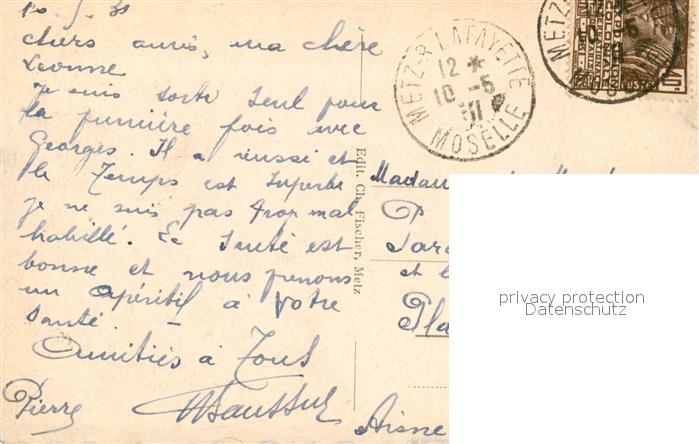 10_5_31
chers amis, ma chère
Leonne
Je suis sorti seul pour
la première fois avec
Georges. Il a reussi et
le Temps est superbe
je ne suis pas trop mal
habillé. La Santé est
bonne et nous prenons
un apéritif à votre
santé. —
Amitiés à Tous
Pierre
Edit. Ch. Fischer, Metz
METZ-R. LAFAYETTE
12 *
10 -5
31
MOSELLE
METZ
10 -5
31
POSTES
Madam
P
et l
Pla
Aisne
privacy protection
Datenschutz